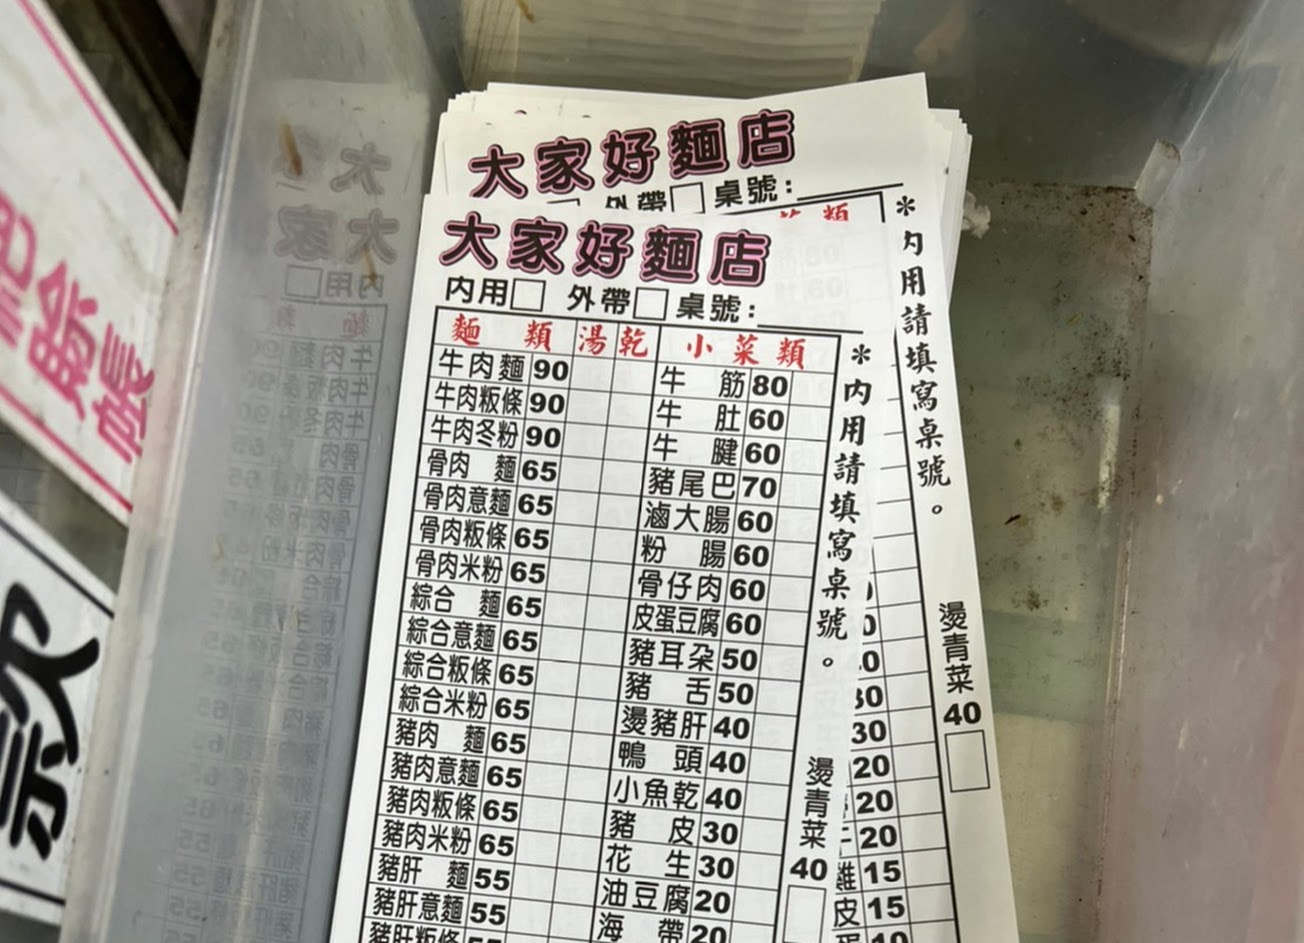 大家好麵店
外帶□ 桌號:
*內用請填寫桌號。
燙青菜 40
大家好麵店
內用□ 外帶□ 桌號:
麵類 湯 乾 小菜類
牛肉麵 90 牛筋 80
牛肉粄條 90 牛肚 60
牛肉冬粉 90 牛腱 60
骨肉麵 65 豬尾巴 70
骨肉意麵 65 滷大腸 60
骨肉粄條 65 粉腸 60
骨肉米粉 65 骨仔肉 60
綜合麵 65 皮蛋豆腐 60
綜合意麵 65 豬耳朵 50
綜合粄條 65 豬舌 50
綜合米粉 65 燙豬肝 40
豬肉麵 65 鴨頭 40
豬肉意麵 65 小魚乾 40
豬肉粄條 65 豬皮 30
豬肉米粉 65 花生 30
豬肝麵 55 油豆腐 20
豬肝意麵 55 海帶 20
豬肝粄條 55
*內用請填寫桌號。
燙青菜 40
30
30
20
20
20
15
皮 15
10